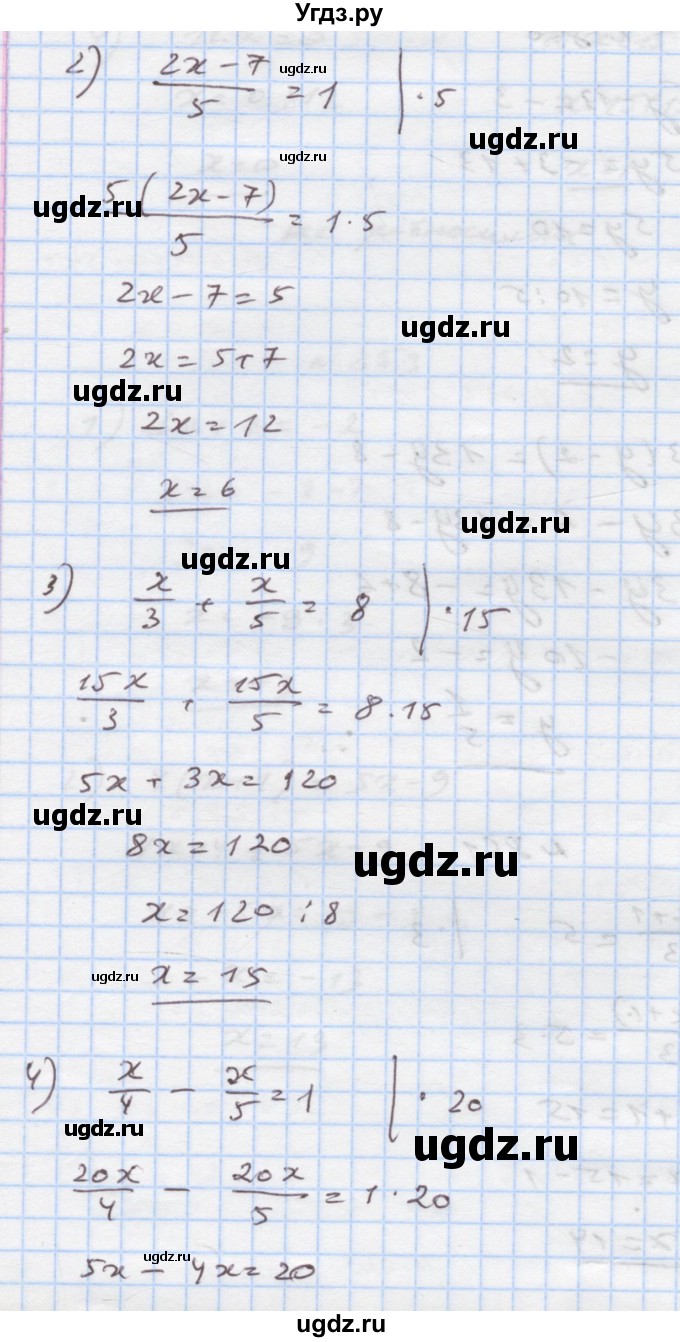 Угдз.ру
2) (2x - 7)/5 = 1 | · 5
ugdz.ru
ugdz.ru
ugdz.ru
5(2x - 7)/5 = 1 · 5
ugdz.ru
2x - 7 = 5
ugdz.ru
2x = 5 + 7
ugdz.ru
2x = 12
x = 6
ugdz.ru
ugdz.ru
3) x/3 + x/5 = 8 | · 15
15x/3 + 15x/5 = 8 · 15
5x + 3x = 120
ugdz.ru
8x = 120
ugdz.ru
x = 120 : 8
ugdz.ru
x = 15
4) x/4 - x/5 = 1 | · 20
ugdz.ru
ugdz.ru
20x/4 - 20x/5 = 1 · 20
ugdz.ru
5x - 4x = 20
ugdz.ru